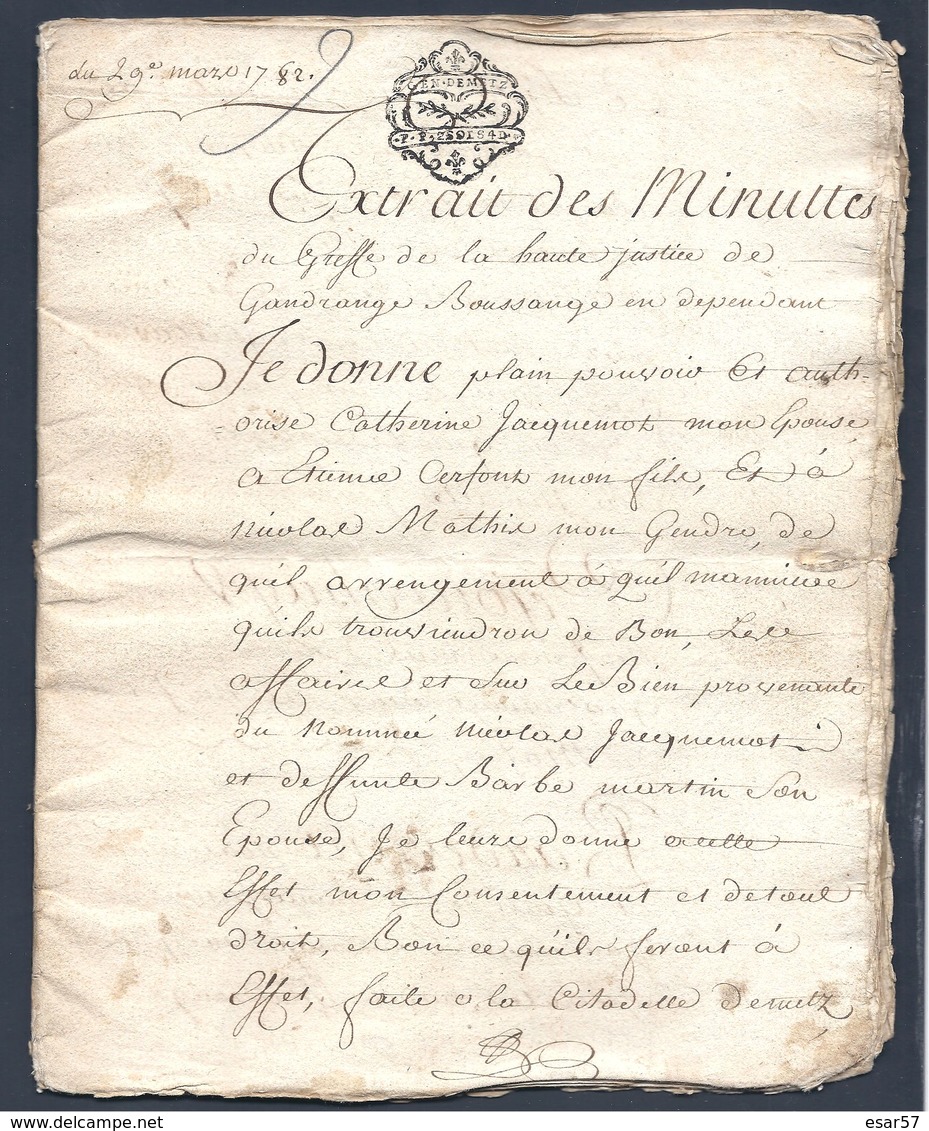 du 29e mars 1782.
GEN · DE METZ
Extrait des Minuttes
du Greffe de la haute justice de
Gandrange Boussange en dependant
Je donne plain pouvoir Et auth-
=orise Catherine Jacquemot mon Epouse
a Etienne Cerfont mon fils, Et á
Nicolas Mathis mon Gendre, de
quél arrengement á quél manniere
quils trouviendron de Bon, Les
affaires et Sur Le Bien provenante
du Nommée Nicolas Jacquemot
et deffunte Barbe martin Son
Epouse, Je leurs donne acelle
Effet mon Consentement et detout
droit, Bon ce quils feront á
Effet, faite a la Citadelle demetz
esar57